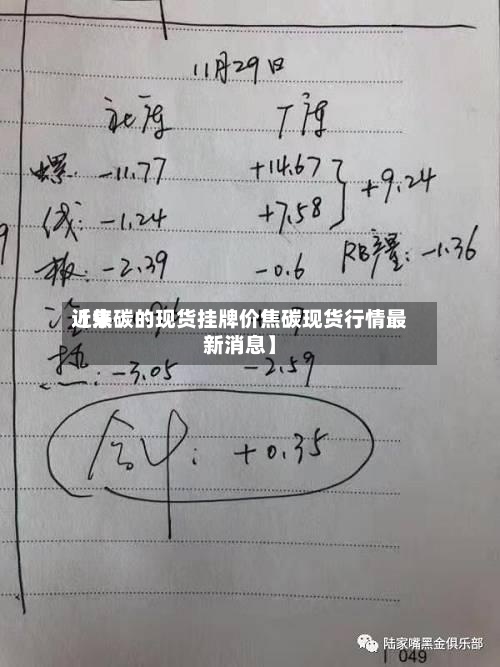 11月29日
社库 厂库
螺: -11.77 +14.67 } +9.24
线: -1.24 +7.58
RB产量: -1.36
板: -2.39 -0.6
的现货挂牌价焦碳现货行情最
新消息】
热: -3.05 -2.59
合计: +0.35
陆家嘴黑金俱乐部
049